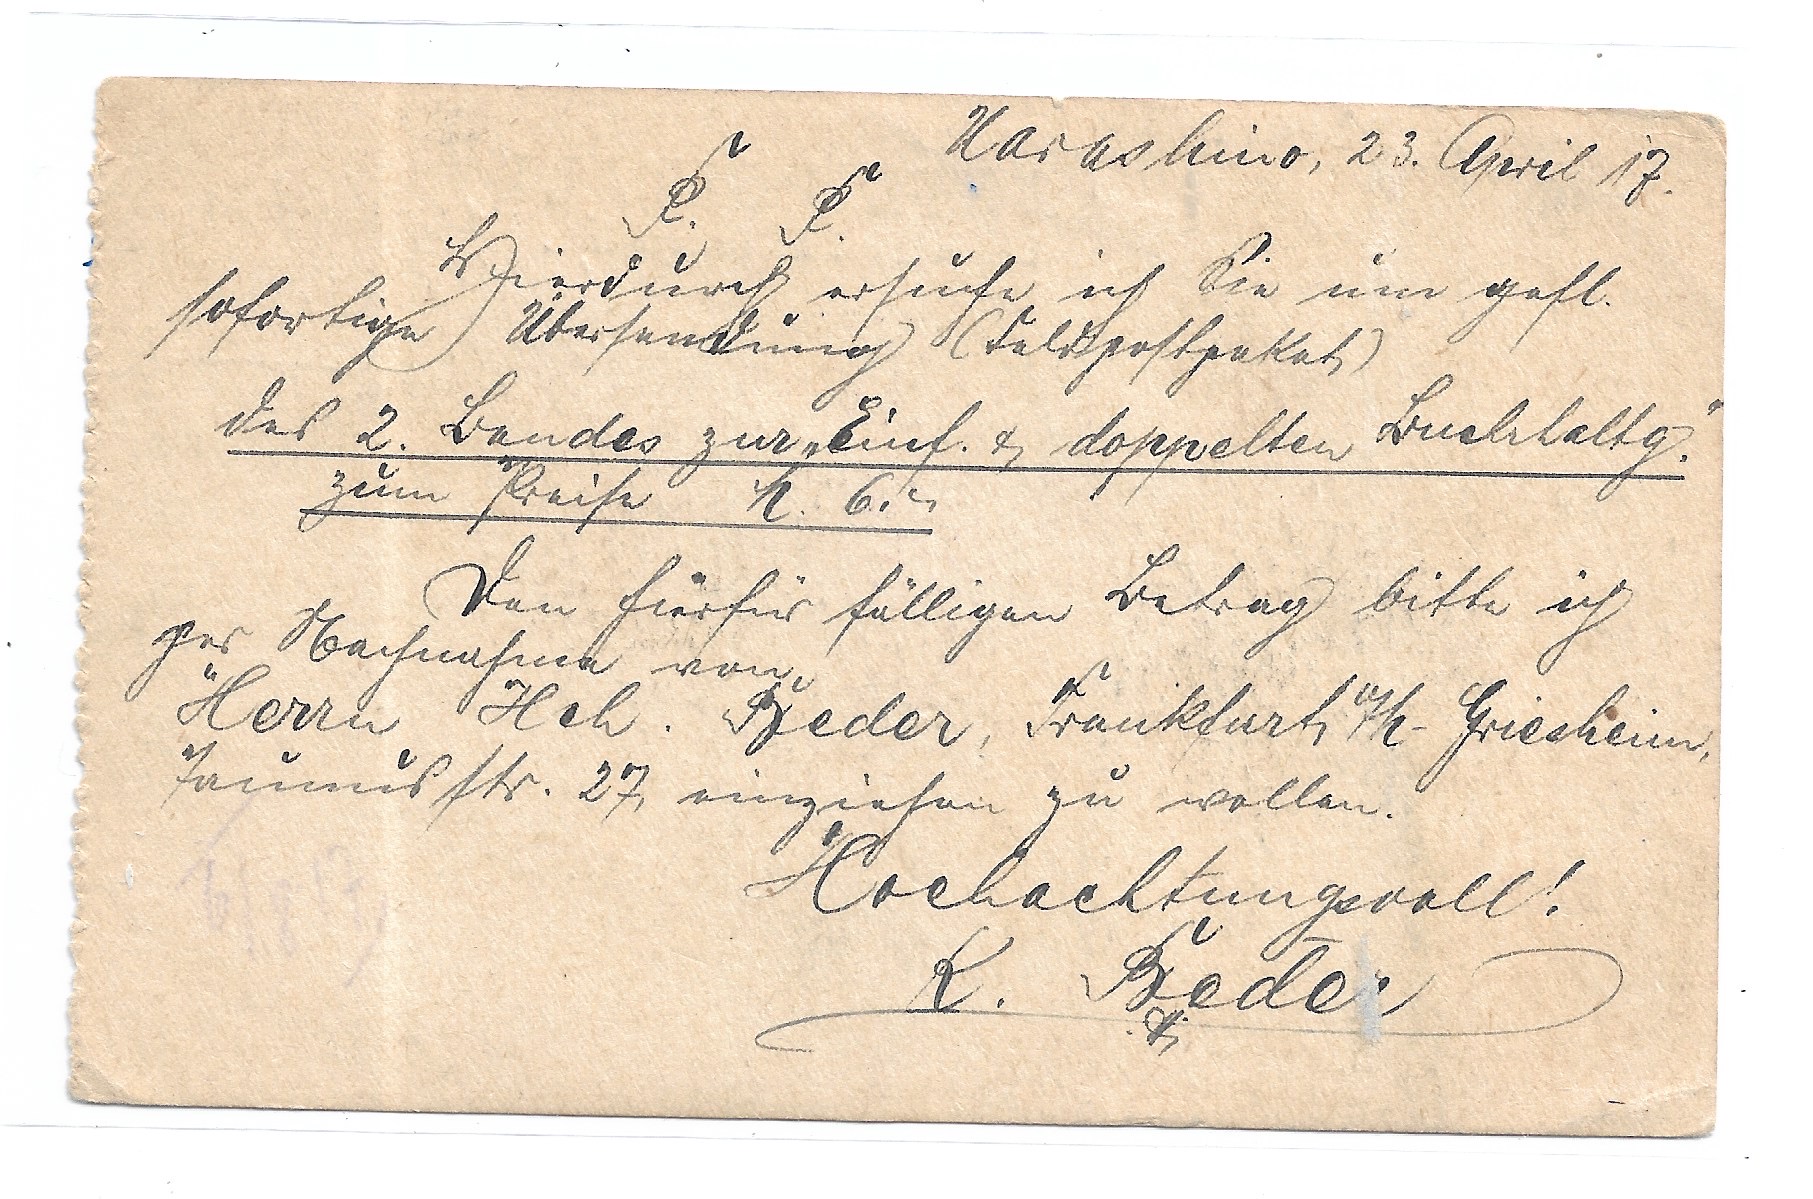 Narashino, 23. April 17.
P. P.
Hierdurch ersuche ich Sie um gefl.
sofortige Übersendung (Feldpostpaket)
des 2. Bandes zur „Einf. & doppelten Buchhaltg."
zum Preise M. 6.-
Den hierfür fälligen Betrag bitte ich
per Nachnahme von
Herrn Hch. Beder, Frankfurt a/M- Griesheim,
Taunusstr. 27, einziehen zu wollen.
Hochachtungsvoll!
K. Beder